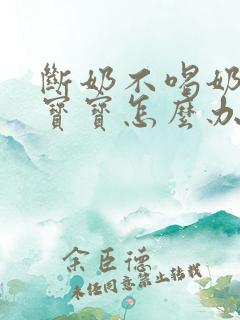 斷奶不喝奶
寶寶怎麼办
余臣德
未经同意禁止转载